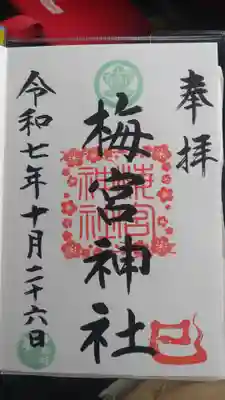 奉拝
梅宮神社
令和七年十月二十六日
梅宮神社
巳